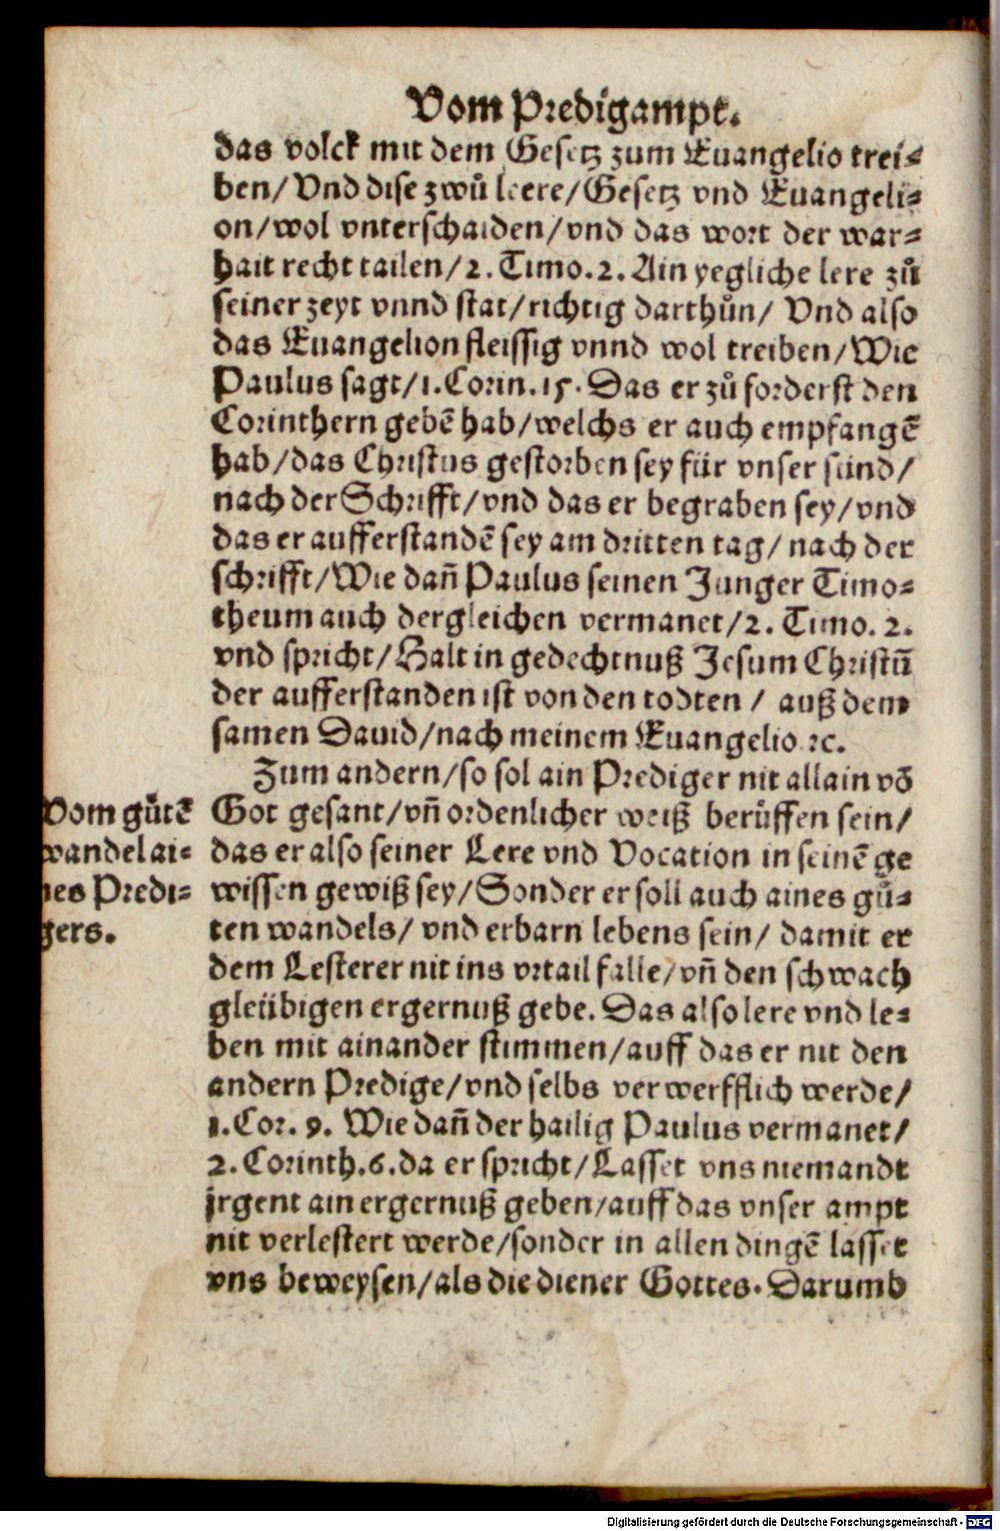 Vom Predigampt.
das volck mit dem Gesetz zum Euangelio trei⸗
ben/Vnd dise zwů leere/Gesetz vnd Euangeli⸗
on/wol vnterschaiden/vnd das wort der war⸗
hait recht tailen/2. Timo.2. Ain yegliche lere zů
seiner zeyt vnnd stat/richtig darthůn/ Vnd also
das Euangelion fleissig vnnd wol treiben/Wie
Paulus sagt/1.Corin.15. Das er zů forderst den
Corinthern gebē hab/welchs er auch empfangē
hab/das Christus gestorben sey für vnser sünd/
nach der Schrifft/vnd das er begraben sey/vnd
das er aufferstandē sey am dritten tag/ nach der
schrifft/Wie dañ Paulus seinen Junger Timo⸗
theum auch dergleichen vermanet/2. Timo. 2.
vnd spricht/Halt in gedechtnuß Jesum Christū
der aufferstanden ist von den todten / auß dem
samen Dauid/nach meinem Euangelio ꝛc.
Zum andern/so sol ain Prediger nit allain vō
Vom gůtē
wandel ai⸗
nes Predi⸗
gers.
Got gesant/vñ ordenlicher weiß berůffen sein/
das er also seiner Lere vnd Vocation in seinē ge
wissen gewiß sey/Sonder er soll auch aines gů⸗
ten wandels/ vnd erbarn lebens sein/ damit er
dem Lesterer nit ins vrtail falle/vñ den schwach
gleübigen ergernuß gebe. Das also lere vnd le⸗
ben mit ainander stimmen/auff das er nit den
andern Predige/vnd selbs verwerfflich werde/
1.Cor. 9. Wie dañ der hailig Paulus vermanet/
2.Corinth.6.da er spricht/Lasset vns niemandt
jrgent ain ergernuß geben/auff das vnser ampt
nit verlestert werde/sonder in allen dingē lasset
vns beweysen/als die diener Gottes. Darumb
Digitalisierung gefördert durch die Deutsche Forschungsgemeinschaft - DFG